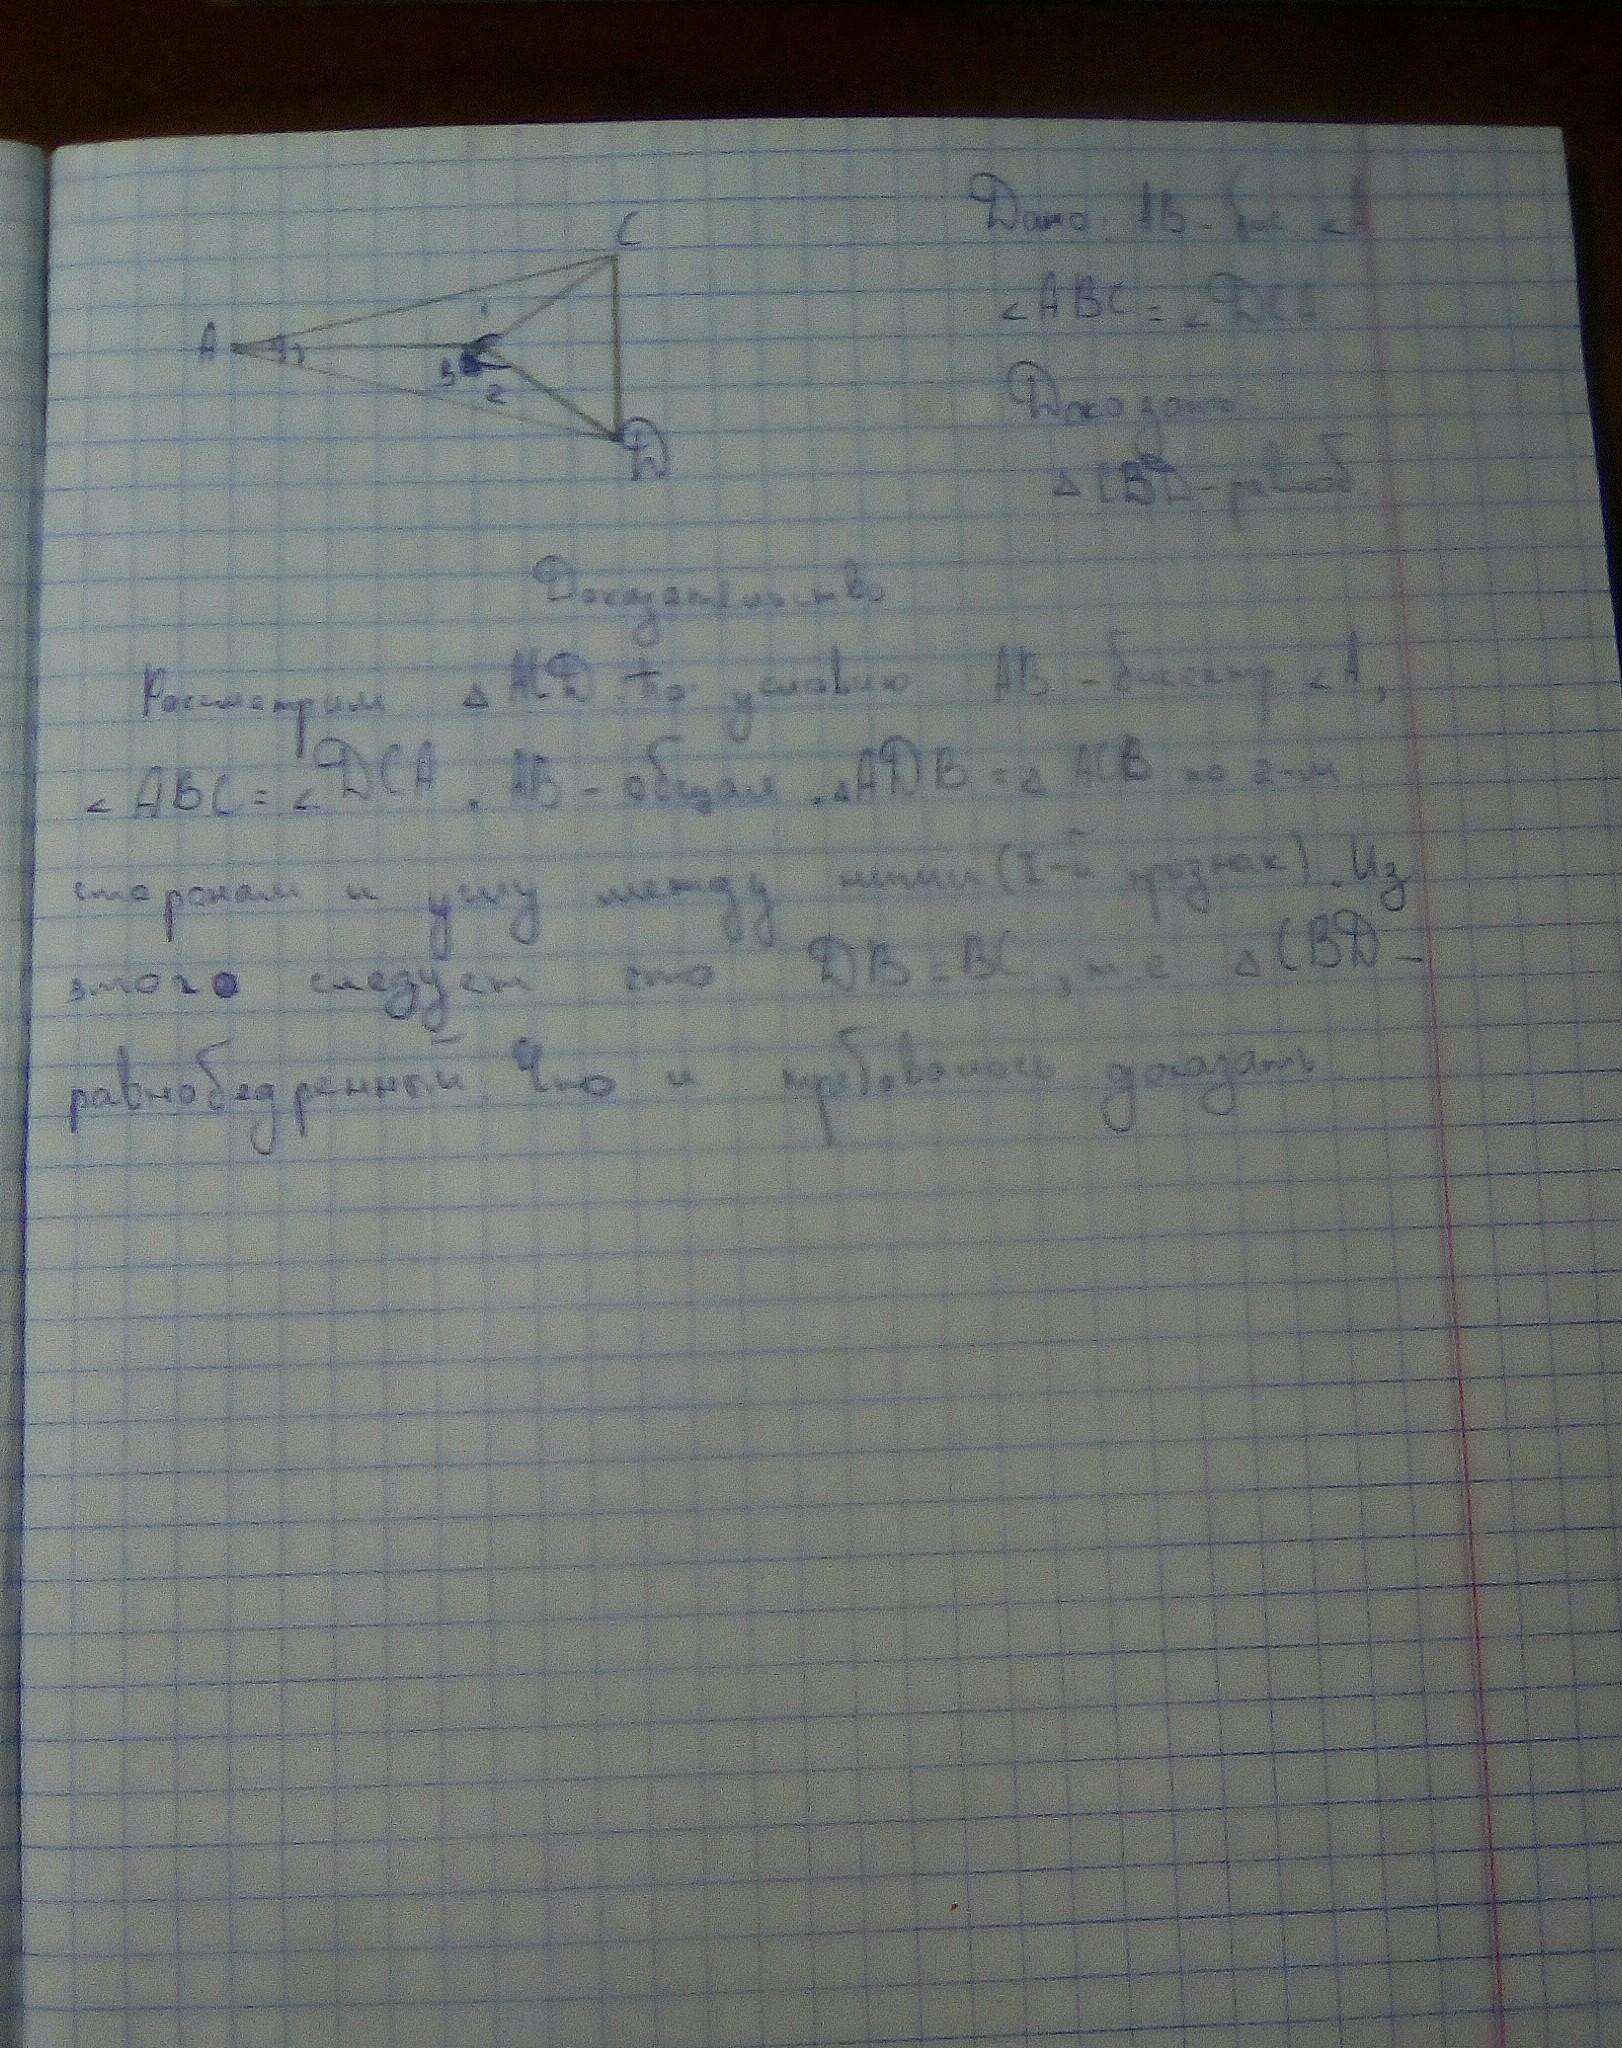 C
A
1
B
2
D
Дано: AB - бис. ∠A
∠ABC = ∠DCA
Доказать:
△CBD - равноб.
Доказательство
Рассмотрим △ACD. По условию AB - биссектр ∠A,
∠ABC = ∠DCA. AB - общая. △ADB = △ACB по 2-м
сторонам и углу между ними (I-й признак). Из
этого следует что DB = BC, т.е △CBD -
равнобедренный. Что и требовалось доказать